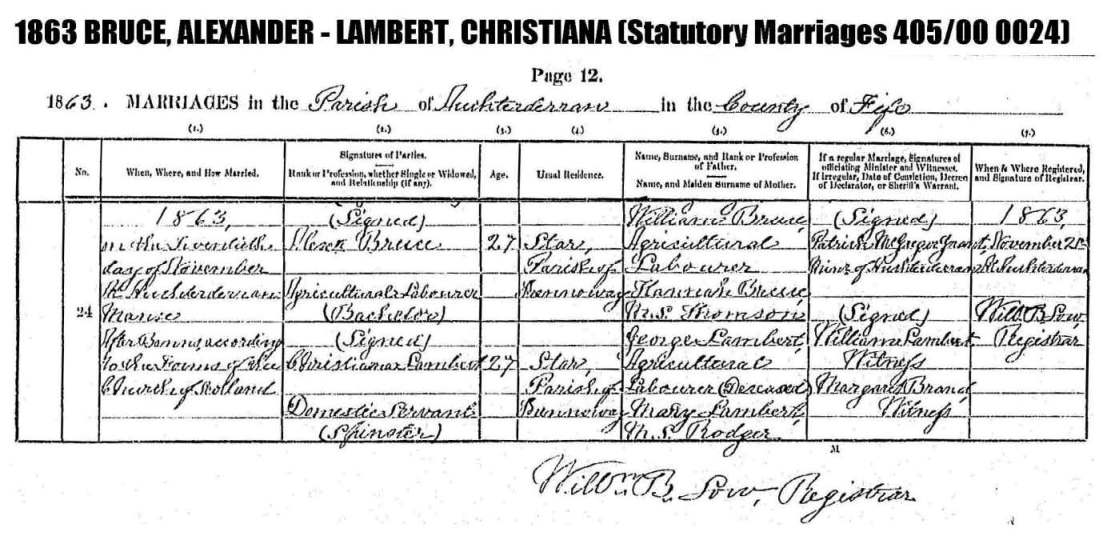 1863 BRUCE, ALEXANDER - LAMBERT, CHRISTIANA (Statutory Marriages 405/00 0024)
Page 12.
1863. MARRIAGES in the Parish of Auchterderran in the County of Fife
(1.) (2.) (3.) (4.) (5.) (6.) (7.)
No.
When, Where, and How Married.
Signatures of Parties.
Rank or Profession, whether Single or Widowed,
and Relationship (if any).
Age.
Usual Residence.
Name, Surname, and Rank or Profession
of Father.
Name, and Maiden Surname of Mother.
If a regular Marriage, Signatures of
officiating Minister and Witnesses.
If irregular, Date of Conviction, Decree
of Declarator, or Sheriff's Warrant.
When & Where Registered,
and Signature of Registrar.
24
1863,
on the
day of November
At Auchterderran
Manse
After Banns, according
to the Forms of the
Church of Scotland
(Signed)
Bruce
Agricultural Labourer
(Bachelor)
(Signed)
Christiana Lambert
Domestic Servant
(Spinster)
27
27
Star,
Parish of
Star,
Parish of
William Bruce,
Agricultural
Labourer
Hannah Bruce
M.S. Thomson
George Lambert,
Agricultural
Labourer (Deceased)
Mary Lambert,
M.S. Rodger
(Signed)
Patrick McGregor Grant,
Minr of Auchterderran
(Signed)
William Lambert
Witness
Margaret Brand
Witness
1863,
November 21st
At Auchterderran
Registrar
M
Registrar